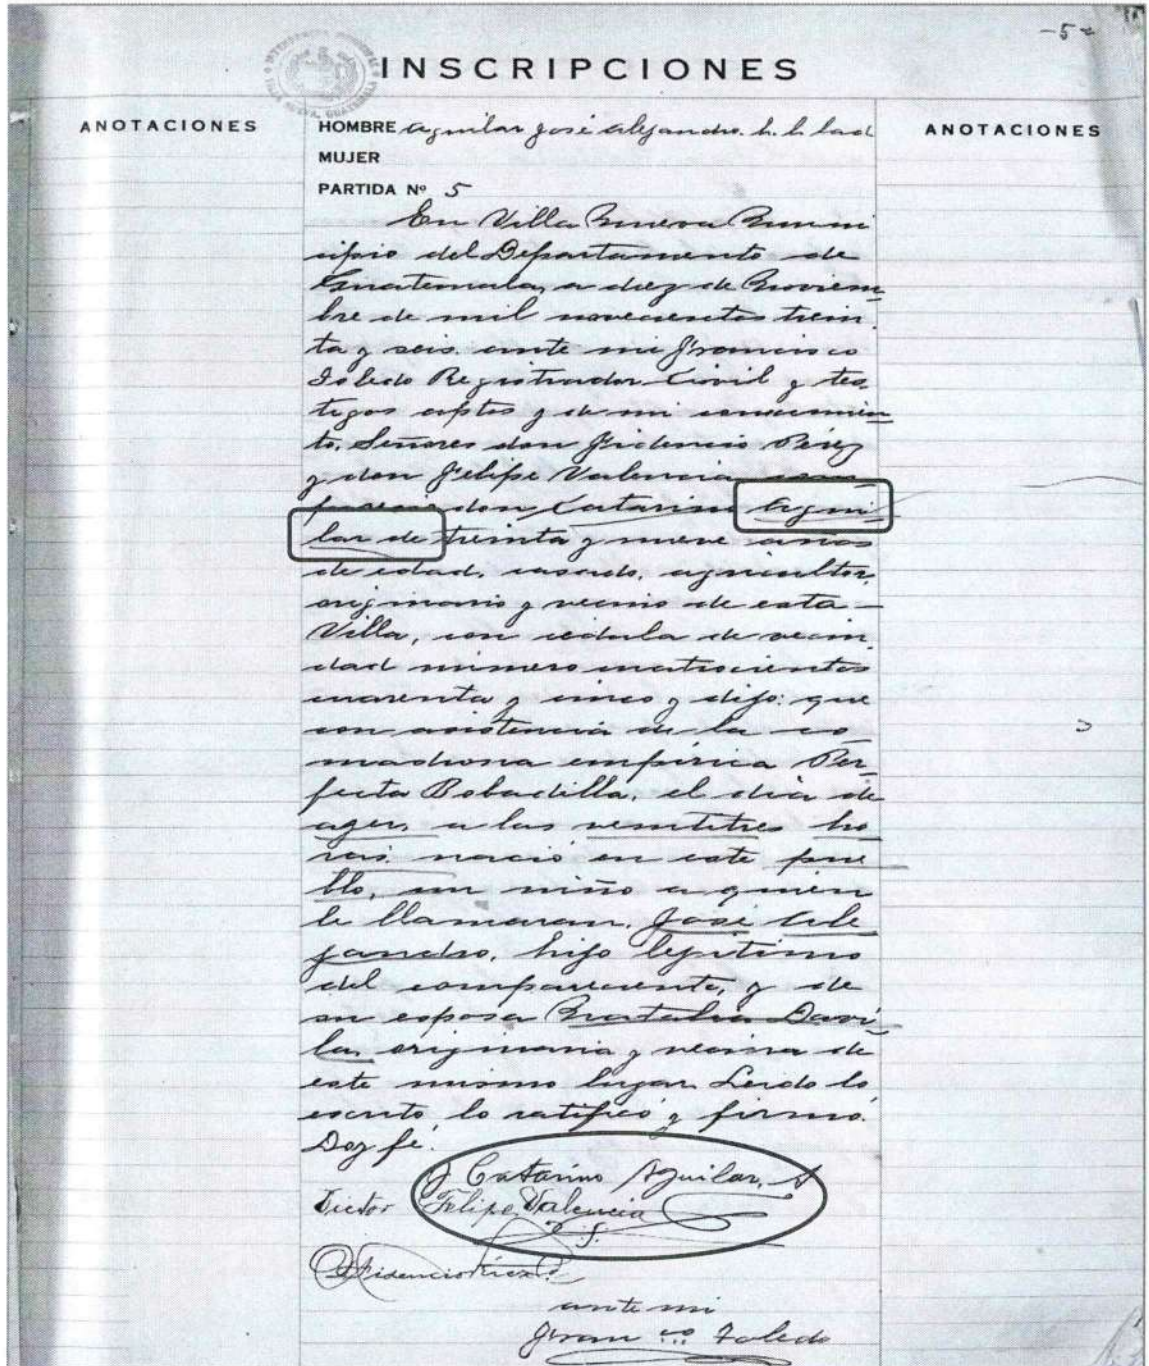 -5-
INSCRIPCIONES
ANOTACIONES
HOMBRE Aguilar José Alejandro. h. l. lad
ANOTACIONES
MUJER
PARTIDA Nº 5
En Villa Nueva Muni
cipio del Departamento de
Guatemala, a diez de Noviem
bre de mil novecientos trein
ta y seis. ante mi Francisco
Toledo Registrador Civil y tes
tigos aptos y de mi conocimien
to, Señores don Fidencio Pérez
y don Felipe Valencia com
pareció don Catarino Agui
lar de treinta y nueve años
de edad, casado, agricultor,
originario y vecino de esta
Villa, con cédula de vecin
dad número cuatrocientos
cuarenta y cinco y dijo: que
con asistencia de la co
madrona empírica Per
fecta Bobadilla, el día de
ayer, a las veintitres ho
ras. nació en este pue
blo, un niño a quien
le llamaran, José Ale
jandro, hijo lejitimo
del compareciente, y de
su esposa Natalia Davi
la, originaria y vecina de
este mismo lugar. Leido lo
escrito lo ratificó y firmó.
Doy fe.
J Catarino Aguilar. A
Victor Felipe Valencia
Fidencio Pérez
ante mi
Fran co Toledo